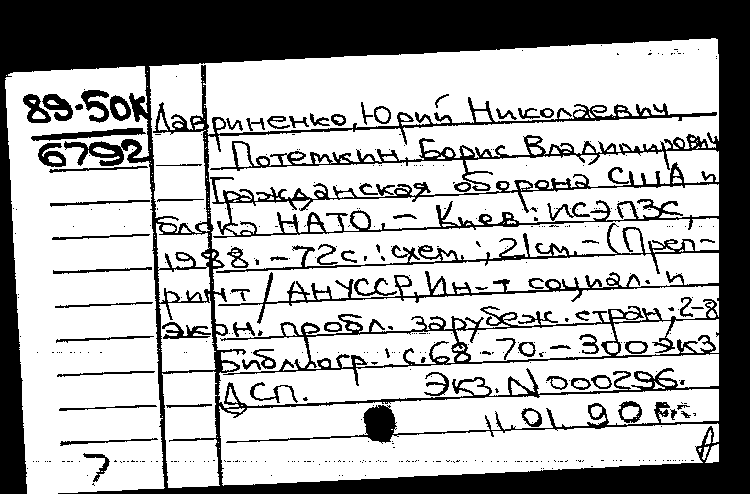 89-50К
6792
Лавриненко, Юрий Николаевич,
Потемкин, Борис Владимирович
Гражданская оборона США и
блока НАТО. – Киев : ИСЭПЗС,
1988. – 72с. : схем. ; 21см. – (Преп-
ринт / АН УССР, Ин-т социал. и
экон. пробл. зарубеж. стран ; 2-8
Библиогр. : с.68-70. – 300 экз
ДСП. Экз. N 000296.
11.01.90
7